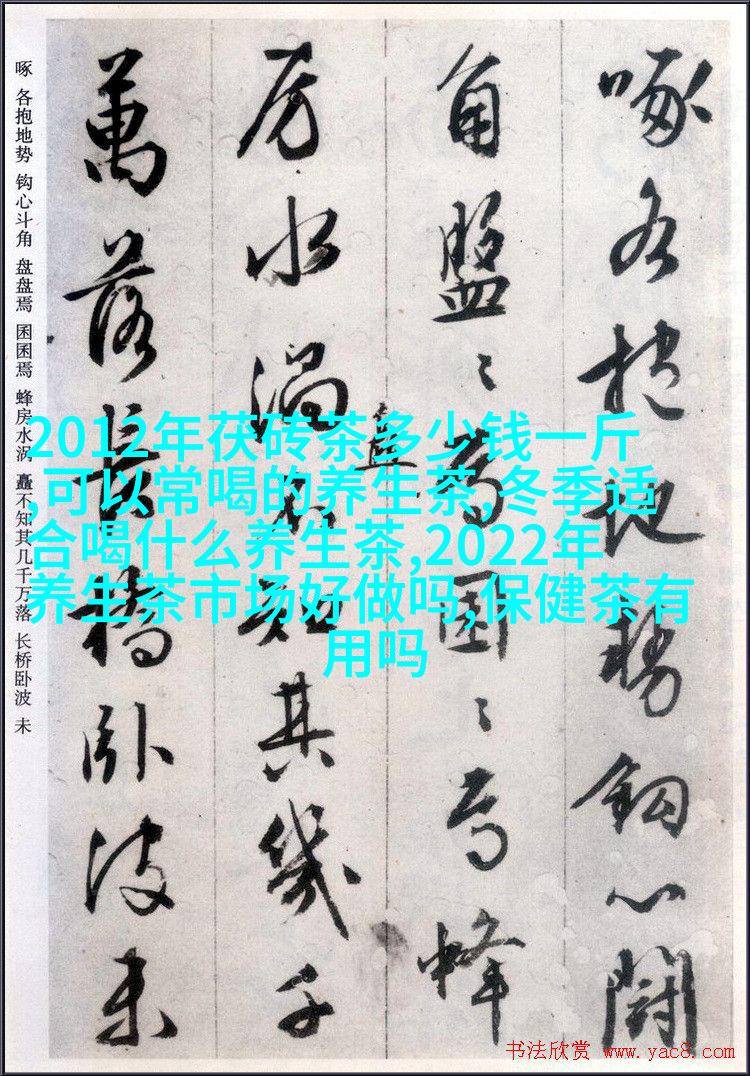 啄各抱地势钩心斗
角盘〻焉囷〻焉蜂
房水涡矗不知其几千
萬落长桥卧波未
啄 各抱地势 钩心斗角 盘盘焉 囷囷焉 蜂房水涡 矗不知其几千万落 长桥卧波 未
2012年茯砖茶多少钱一斤
,可以常喝的养生茶,冬季适
合喝什么养生茶,2022年
养生茶市场好做吗,保健茶有
用吗
书法欣赏 www.yac8.com